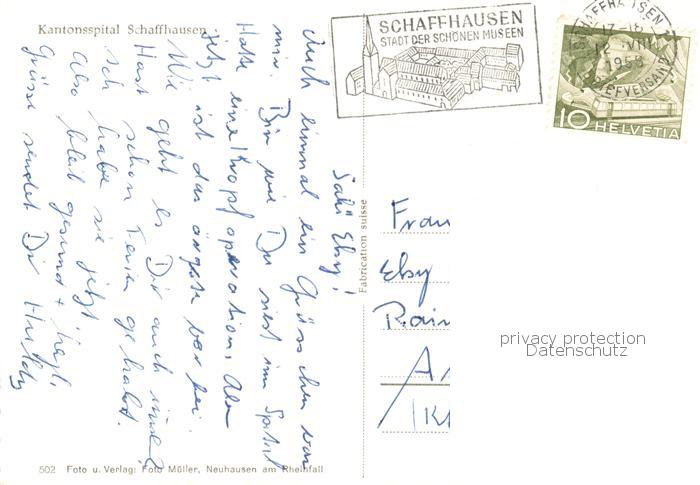 Kantonsspital Schaffhausen
SCHAFFHAUSEN
STADT DER SCHÖNEN MUSEEN
SCHAFFHAUSEN 1
17-18
12. VIII.
1958
BRIEFVERSAND
10 HELVETIA
Sali Eby!
Auch einmal ein Grüsschen von
mir. Bin wie Du siest im Spital
Hatte eine Kropfoperation. Aber
jetzt ist das ärgste vorbei.
Wie geht es Dir auch immer?
Hast schon Ferien gehabt.
Ich habe sie jetzt
Also bleib gesund +
Grüsse sendet Dir Huldy
Fabrication suisse
Frau
Eby
502 Foto u. Verlag: Foto Müller, Neuhausen am Rheinfall
privacy protection
Datenschutz